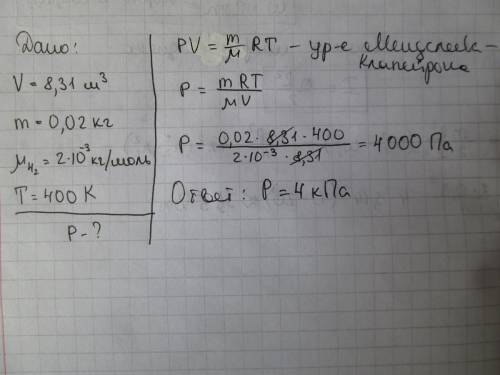 Дано:
V = 8,31 м³
m = 0,02 кг
μ_H₂ = 2·10⁻³ кг/моль
T = 400 К
P - ?
PV = m/μ RT – ур-е Менделеева-
Клапейрона
P = mRT/μV
P = 0,02 · 8,31 · 400 / 2·10⁻³ · 8,31 = 4000 Па
Ответ: P = 4 кПа